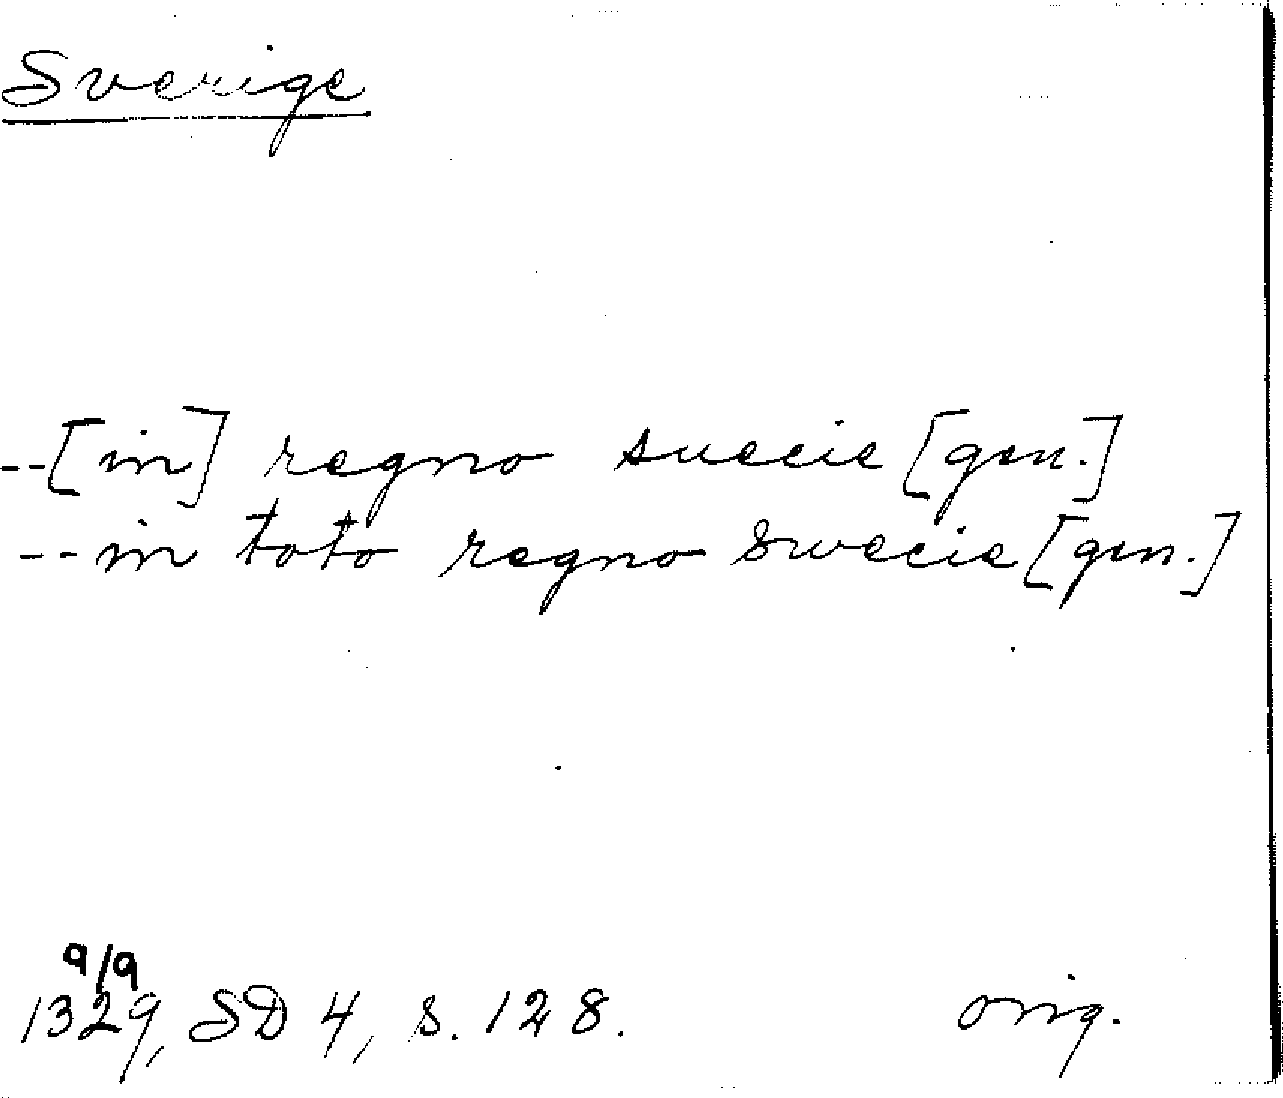 Sverige
--[in] regno suecie [gen.]
--in toto regno Swecie [gen.]
9/9
1329, SD 4, s. 128. orig.